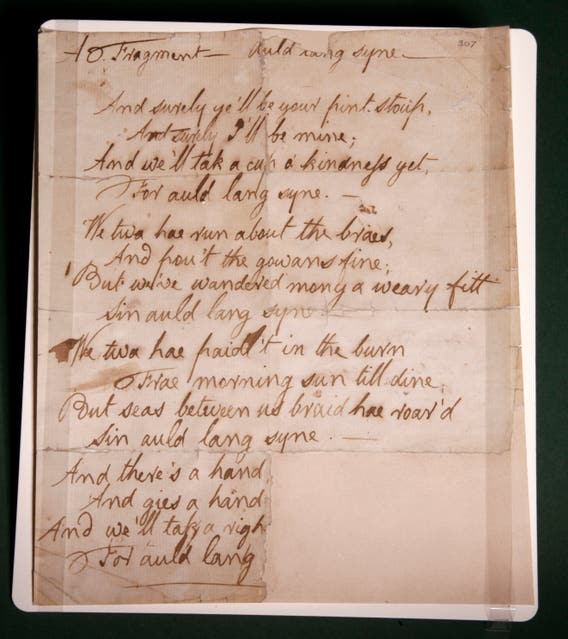 A O. Fragment — Auld lang syne —
307
And surely ye'll be your pint stoup,
And surely I'll be mine;
And we'll tak a cup o' kindness yet,
For auld lang syne. —
We twa hae run about the braes,
And pou't the gowans fine;
But we've wandered mony a weary fitt
Sin auld lang syne
We twa hae paidl't in the burn
Frae morning sun till dine,
But seas between us braid hae roar'd
Sin auld lang syne. —
And there's a hand
And gies a hand
And we'll tak a righ
For auld lang